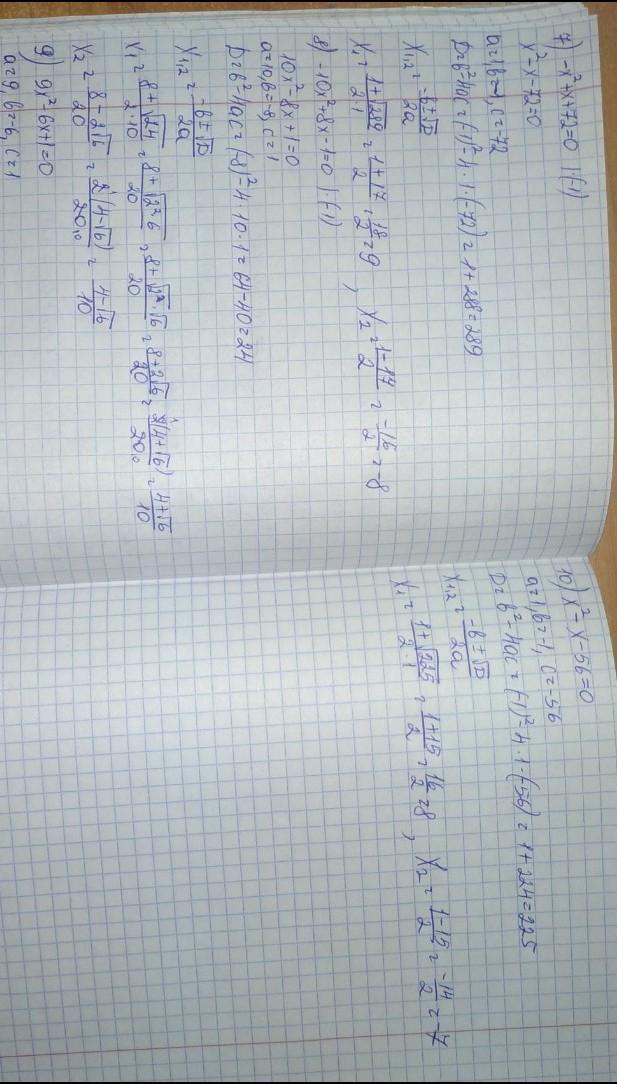 7) -x²+x+72=0 |·(-1)
x²-x-72=0
a=1, b=-1, c=-72
D=b²-4ac=(-1)²-4·1·(-72)=1+288=289
x₁,₂=(-b±√D)/2a
x₁=(1+√289)/(2·1)=(1+17)/2=18/2=9, x₂=(1-17)/2=-16/2=-8
8) -10x²+8x-1=0 |·(-1)
10x²-8x+1=0
a=10, b=-8, c=1
D=b²-4ac=(-8)²-4·10·1=64-40=24
x₁,₂=(-b±√D)/2a
x₁=(8+√24)/(2·10)=(8+√(2²·6))/20=(8+√2²·√6)/20=(8+2√6)/20=2(4+√6)/20=(4+√6)/10
x₂=(8-2√6)/20=2(4-√6)/20=(4-√6)/10
9) 9x²-6x+1=0
a=9, b=-6, c=1
10) x²-x-56=0
a=1, b=-1, c=-56
D=b²-4ac=(-1)²-4·1·(-56)=1+224=225
x₁,₂=(-b±√D)/2a
x₁=(1+√225)/(2·1)=(1+15)/2=16/2=8, x₂=(1-15)/2=-14/2=-7